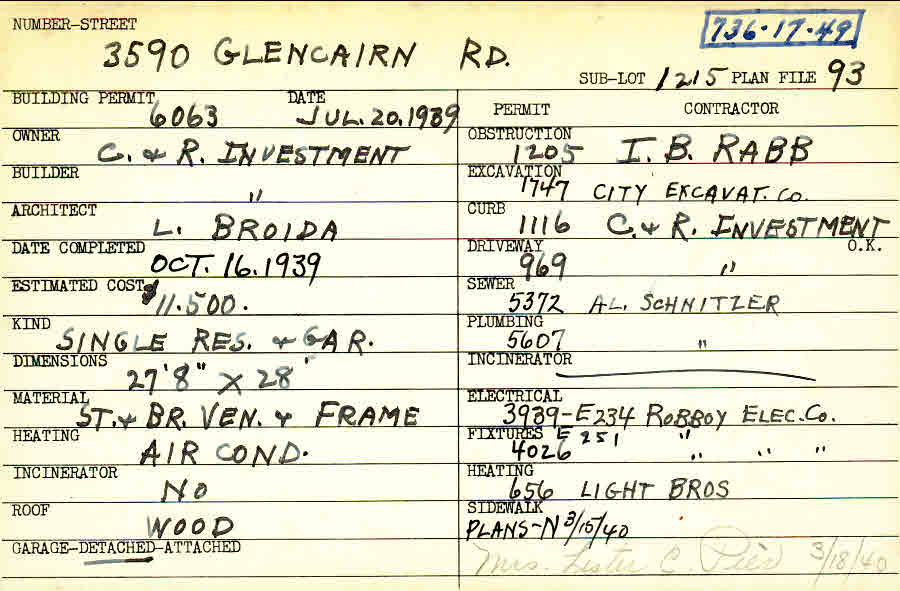 NUMBER-STREET
3590 GLENCAIRN RD.
736-17-49
SUB-LOT 1215 PLAN FILE 93
BUILDING PERMIT DATE
6063 JUL. 20. 1939
OWNER
C. & R. INVESTMENT
BUILDER
"
ARCHITECT
L. BROIDA
DATE COMPLETED
OCT. 16. 1939
ESTIMATED COST
$11.500.
KIND
SINGLE RES. & GAR.
DIMENSIONS
27'8" X 28'
MATERIAL
ST. & BR. VEN. & FRAME
HEATING
AIR COND.
INCINERATOR
NO
ROOF
WOOD
GARAGE-DETACHED-ATTACHED
PERMIT CONTRACTOR
OBSTRUCTION
1205 I. B. RABB
EXCAVATION
1747 CITY EXCAVAT. CO.
CURB
1116 C. & R. INVESTMENT
DRIVEWAY O.K.
969 "
SEWER
5372 AL. SCHNITZER
PLUMBING
5607 "
INCINERATOR
ELECTRICAL
3939-E234 ROBBOY ELEC. CO.
FIXTURES E 251 "
4026 " " "
HEATING
656 LIGHT BROS
SIDEWALK
PLANS-N 3/15/40
Mrs. Lester C. 3/18/40